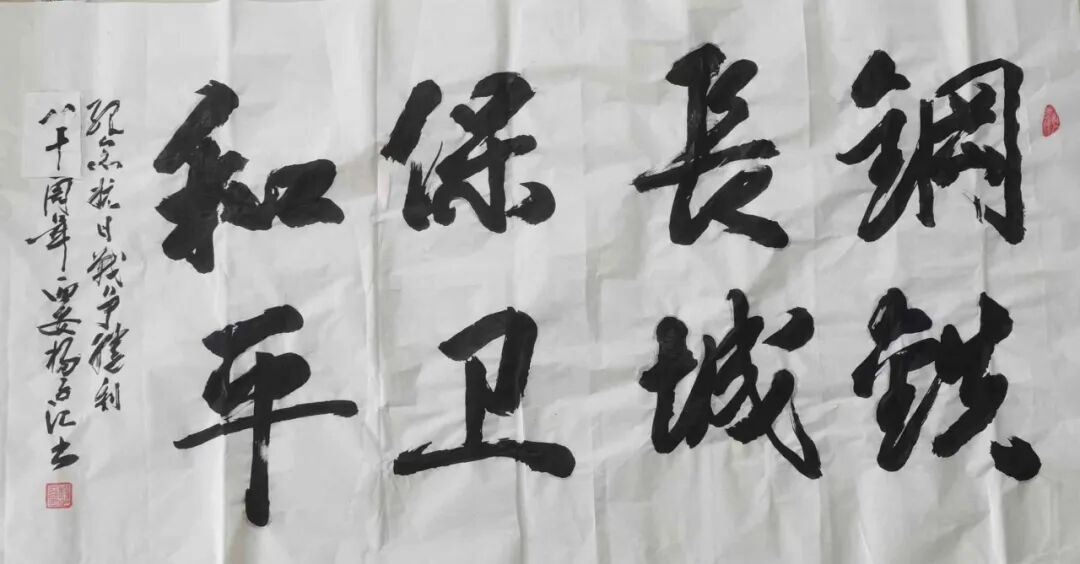 鋼鉄
長城
保卫
和平
纪念抗日战争勝利
八十周年西安杨百江书